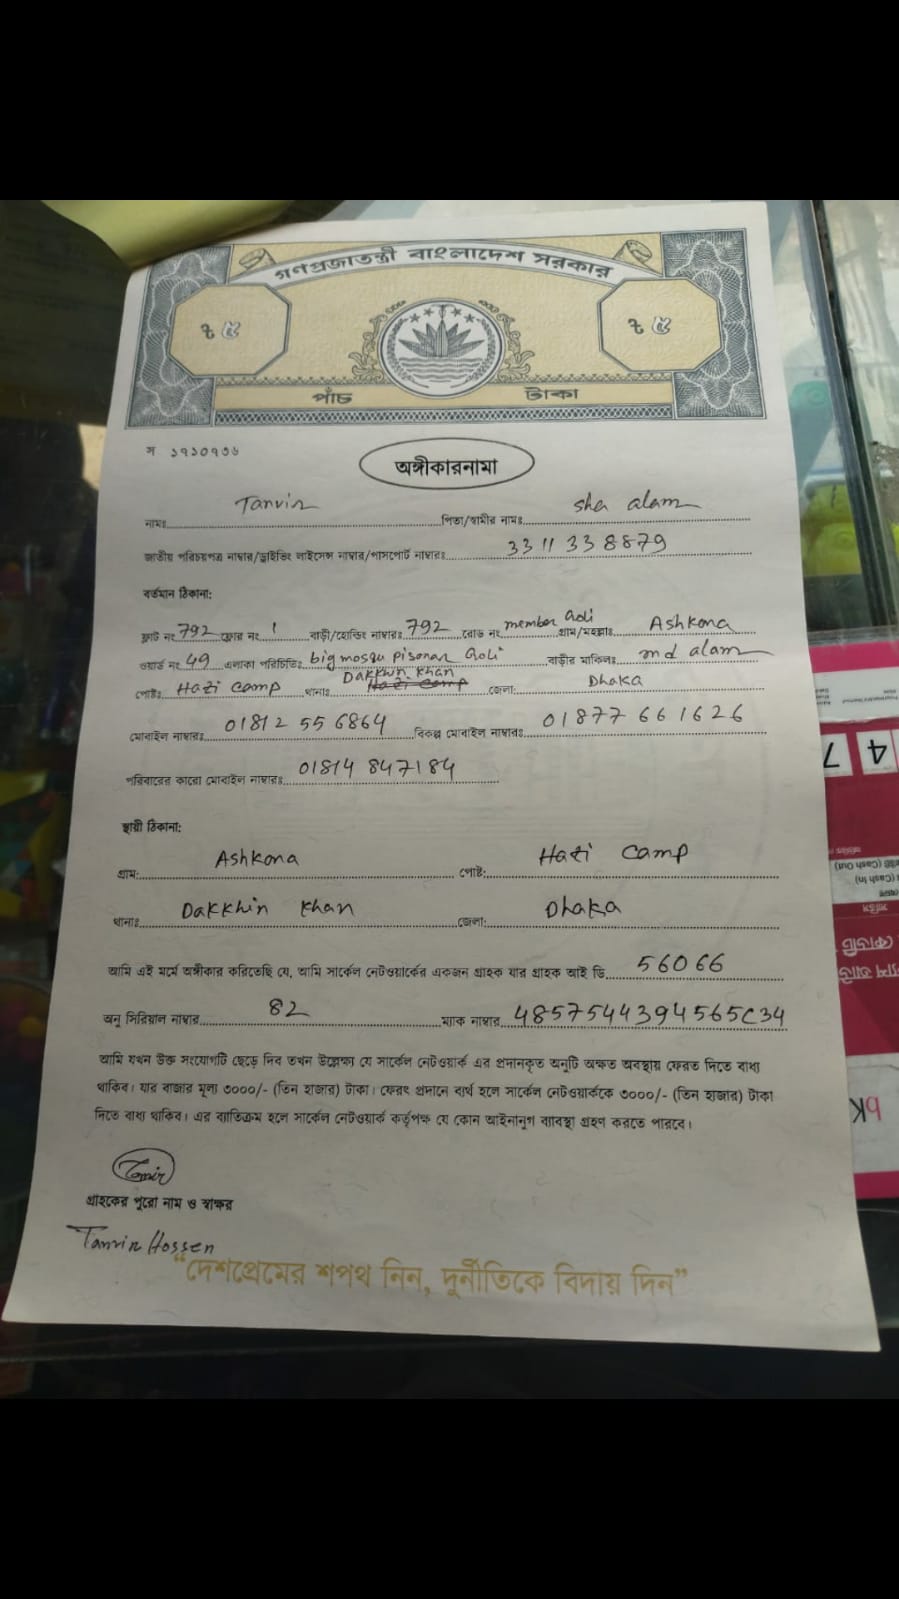 গণপ্রজাতন্ত্রী বাংলাদেশ সরকার
৳ ৫ ৳ ৫
পাঁচ টাকা
স ১৭১০৭৩৬
অঙ্গীকারনামা
নামঃ Tanvin পিতা/স্বামীর নামঃ sha alam
জাতীয় পরিচয়পত্র নাম্বার/ড্রাইভিং লাইসেন্স নাম্বার/পাসপোর্ট নাম্বারঃ 33 11 33 8879
বর্তমান ঠিকানা:
ফ্লাট নং 792 ফ্লোর নং 1 বাড়ী/হোল্ডিং নাম্বারঃ 792 রোড নং member Goli গ্রাম/মহল্লাঃ Ashkona
ওয়ার্ড নং 49 এলাকা পরিচিতিঃ big mosqu pisonar Goli বাড়ীর মালিকঃ md alam
পোষ্টঃ Hazi camp থানাঃ Dakkhin Khan জেলা: Dhaka
মোবাইল নাম্বারঃ 01812 55 6864 বিকল্প মোবাইল নাম্বারঃ 01877 661626
পরিবারের কারো মোবাইল নাম্বারঃ 01814 847184
স্থায়ী ঠিকানা:
গ্রাম: Ashkona পোষ্ট: Hazi camp
থানাঃ Dakkhin Khan জেলা: Dhaka
আমি এই মর্মে অঙ্গীকার করিতেছি যে, আমি সার্কেল নেটওয়ার্কের একজন গ্রাহক যার গ্রাহক আই ডি 56066
অনু সিরিয়াল নাম্বার 82 ম্যাক নাম্বার 48575444394565C34
আমি যখন উক্ত সংযোগটি ছেড়ে দিব তখন উল্লেক্ষ্য যে সার্কেল নেটওয়ার্ক এর প্রদানকৃত অনুটি অক্ষত অবস্থায় ফেরত দিতে বাধ্য
থাকিব। যার বাজার মূল্য ৩০০০/- (তিন হাজার) টাকা। ফেরৎ প্রদানে ব্যর্থ হলে সার্কেল নেটওয়ার্ককে ৩০০০/- (তিন হাজার) টাকা
দিতে বাধ্য থাকিব। এর ব্যতিক্রম হলে সার্কেল নেটওয়ার্ক কর্তৃপক্ষ যে কোন আইনানুগ ব্যাবস্থা গ্রহণ করতে পারবে।
গ্রাহকের পুরো নাম ও স্বাক্ষর
Tanvin Hossen
“দেশপ্রেমের শপথ নিন, দুর্নীতিকে বিদায় দিন”
4 7
(Cash Out)
(Cash In)
bK